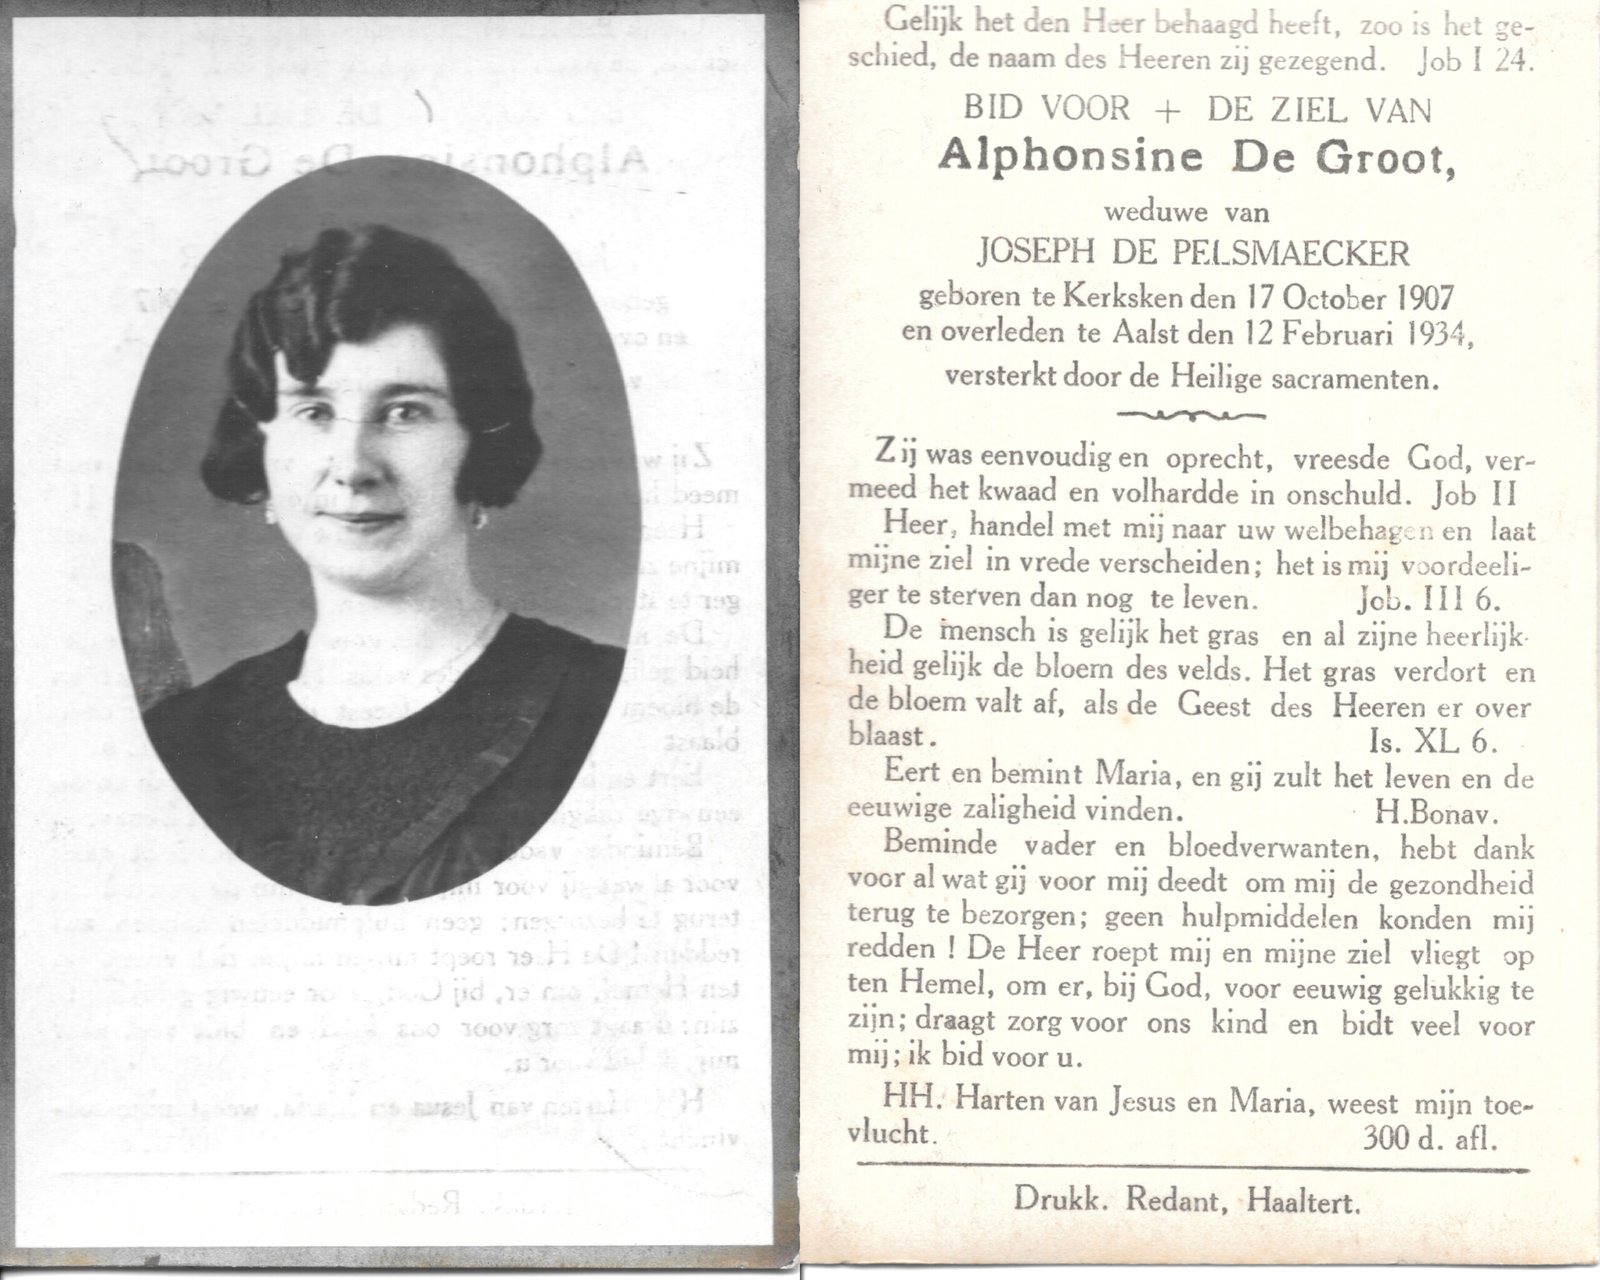 Gelijk het den Heer behaagd heeft, zoo is het ge-
schied, de naam des Heeren zij gezegend. Job I 24.
BID VOOR + DE ZIEL VAN
Alphonsine De Groot,
weduwe van
JOSEPH DE PELSMAECKER
geboren te Kerksken den 17 October 1907
en overleden te Aalst den 12 Februari 1934,
versterkt door de Heilige sacramenten.
Zij was eenvoudig en oprecht, vreesde God, ver-
meed het kwaad en volhardde in onschuld. Job II
Heer, handel met mij naar uw welbehagen en laat
mijne ziel in vrede verscheiden; het is mij voordeeli-
ger te sterven dan nog te leven. Job. III 6.
De mensch is gelijk het gras en al zijne heerlijk-
heid gelijk de bloem des velds. Het gras verdort en
de bloem valt af, als de Geest des Heeren er over
blaast. Is. XL 6.
Eert en bemint Maria, en gij zult het leven en de
eeuwige zaligheid vinden. H.Bonav.
Beminde vader en bloedverwanten, hebt dank
voor al wat gij voor mij deedt om mij de gezondheid
terug te bezorgen; geen hulpmiddelen konden mij
redden ! De Heer roept mij en mijne ziel vliegt op
ten Hemel, om er, bij God, voor eeuwig gelukkig te
zijn; draagt zorg voor ons kind en bidt veel voor
mij; ik bid voor u.
HH. Harten van Jesus en Maria, weest mijn toe-
vlucht. 300 d. afl.
Drukk. Redant, Haaltert.